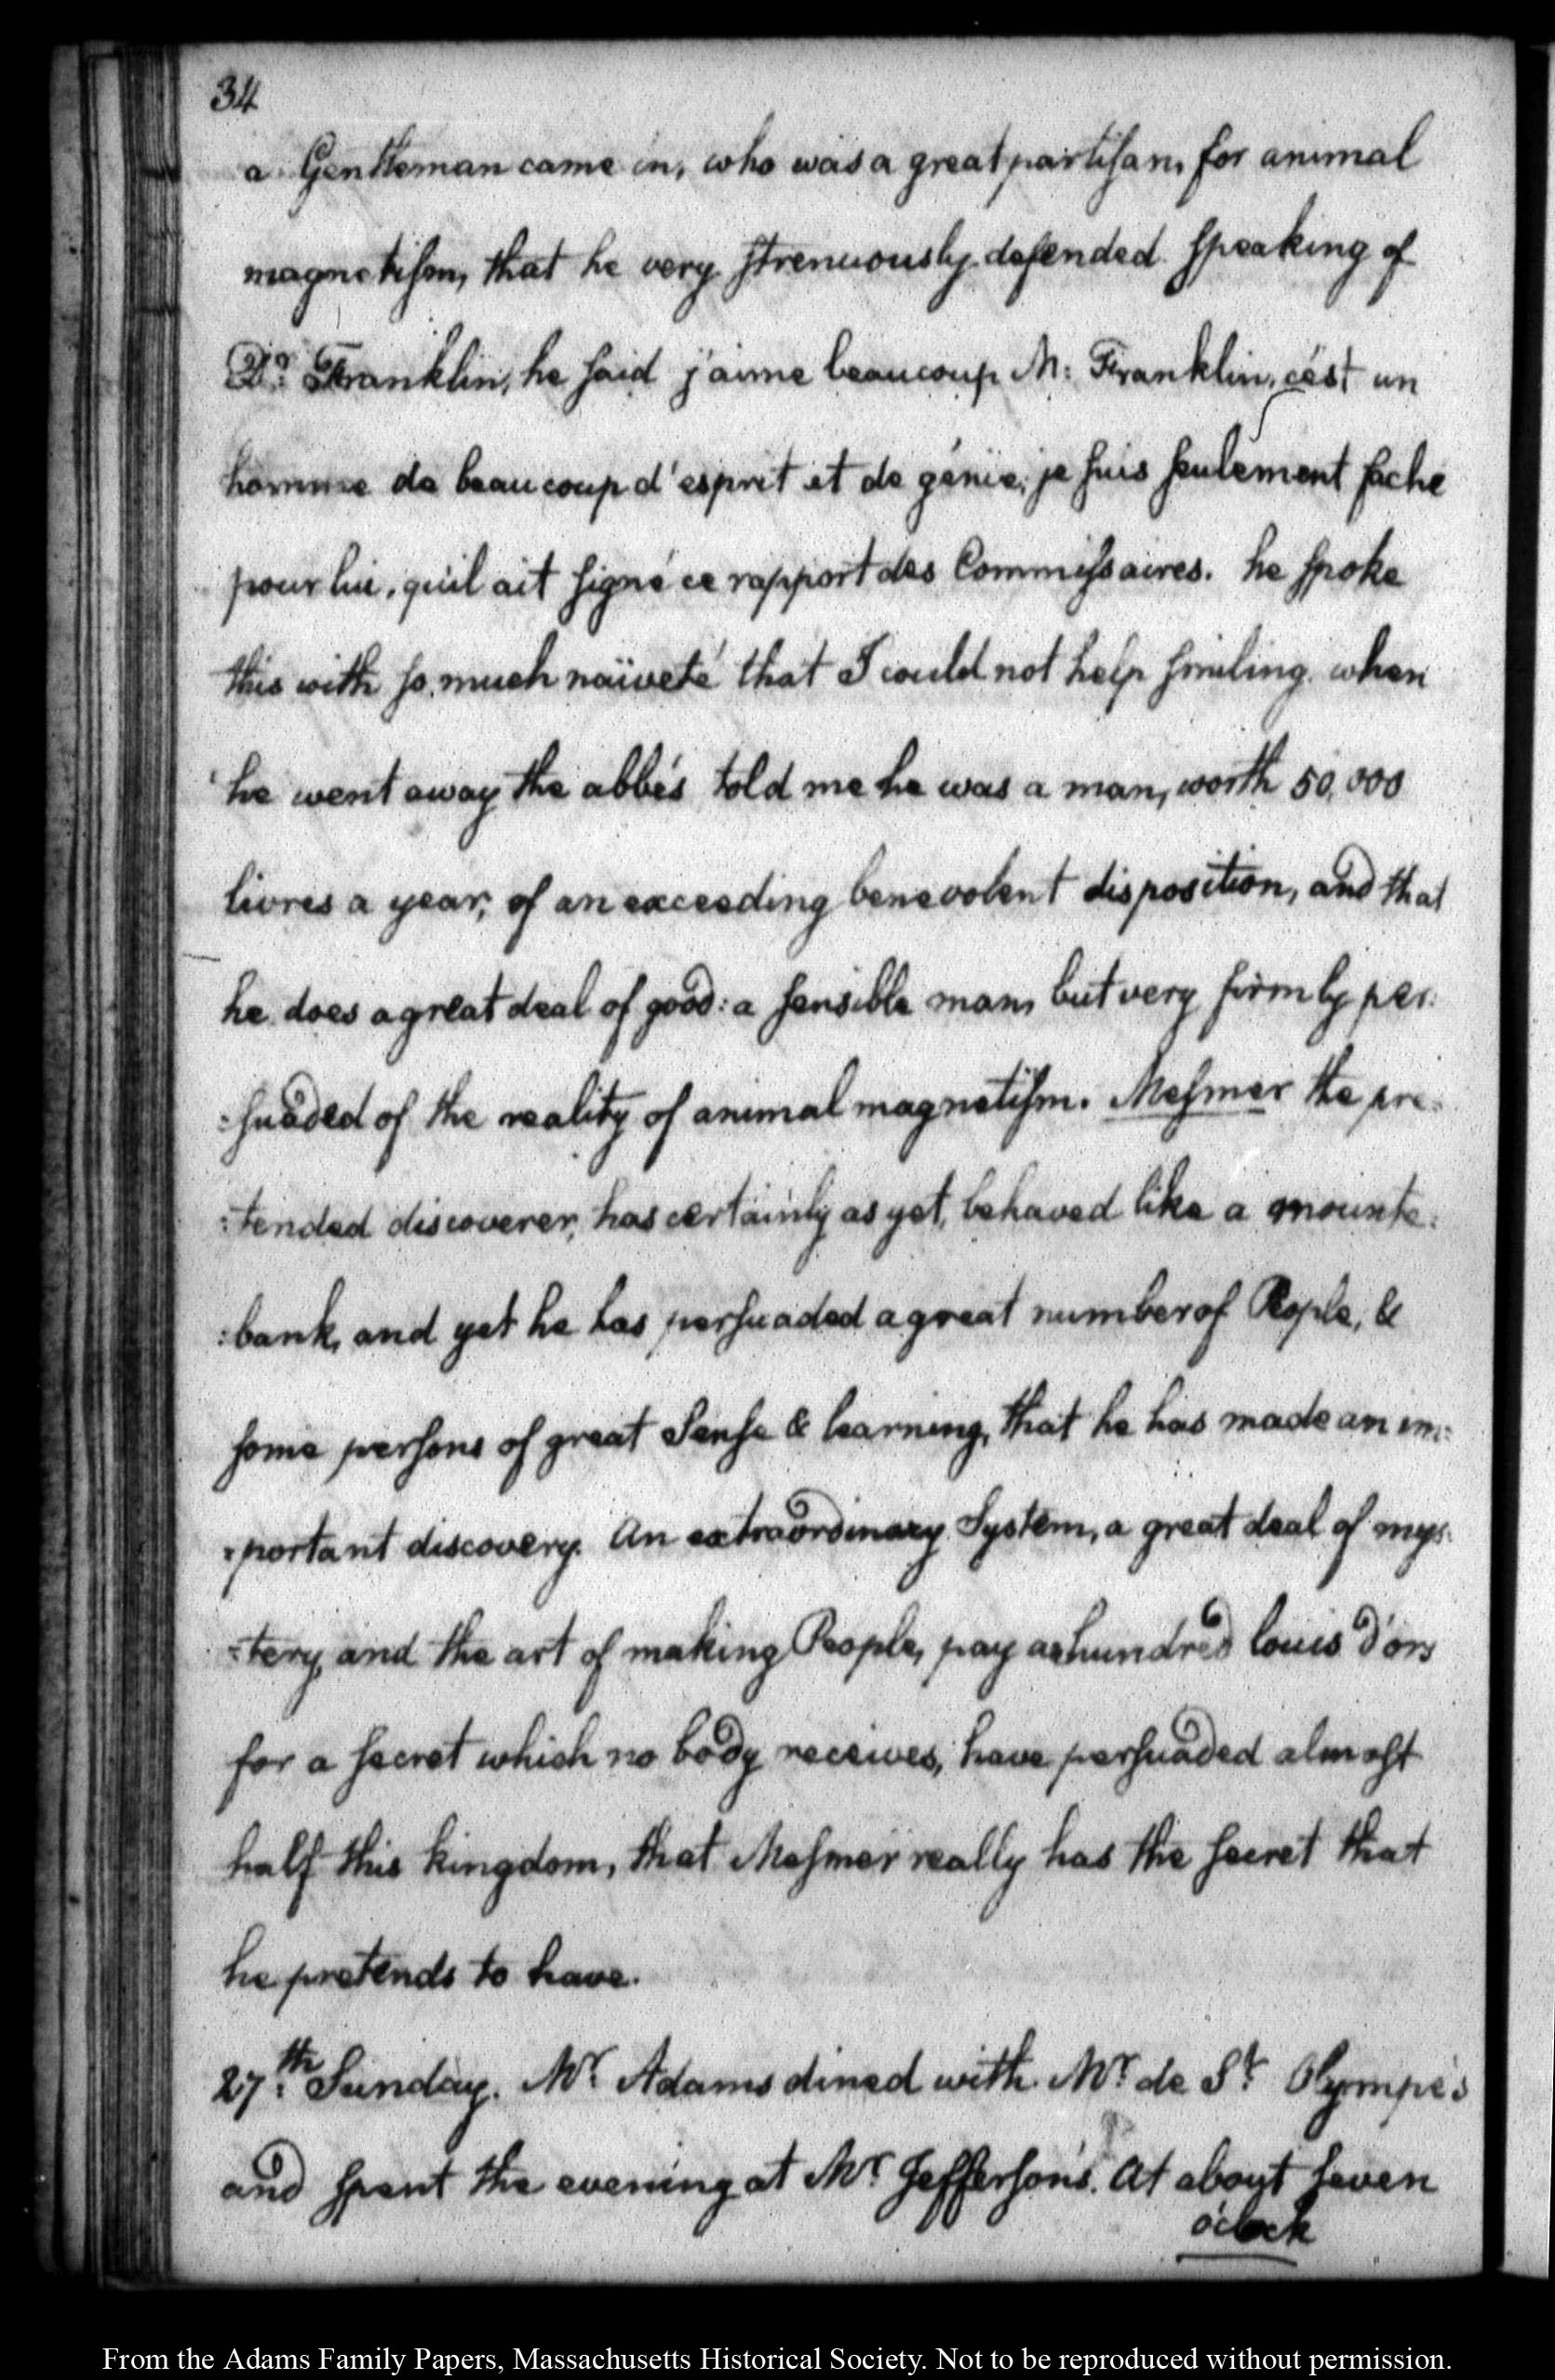 34
a Gentleman came in, who was a great partisan, for animal
magnetism, that he very strenuously defended. speaking of
Dr: Franklin, he said j'aime beaucoup M: Franklin, c'est un
homme de beaucoup d'esprit et de génie, je suis seulement faché
pour lui, qu'il ait signé ce rapport des Commissaires. he spoke
this with so much naïveté that I could not help smiling. when
he went away the abbés told me he was a man, worth 50,000
livres a year, of an exceeding benevolent disposition, and that
he does a great deal of good: a sensible man, but very firmly per:
:suaded of the reality of animal magnetism. Mesmer the pre:
:tended discoverer, has certainly as yet, behaved like a mounte:
:bank, and yet he has persuaded a great number of People, &
some persons of great Sense & learning, that he has made an im:
:portant discovery. An extraordinary System, a great deal of mys:
:tery, and the art of making People, pay a hundred louis d'ors
for a secret which no body receives, have persuaded almost
half this kingdom, that Mesmer really has the secret that
he pretends to have.
27:th Sunday. Mr Adams dined with Mr de St Olympe's
and spent the evening at Mr Jefferson's. At about seven
o'clock
From the Adams Family Papers, Massachusetts Historical Society. Not to be reproduced without permission.